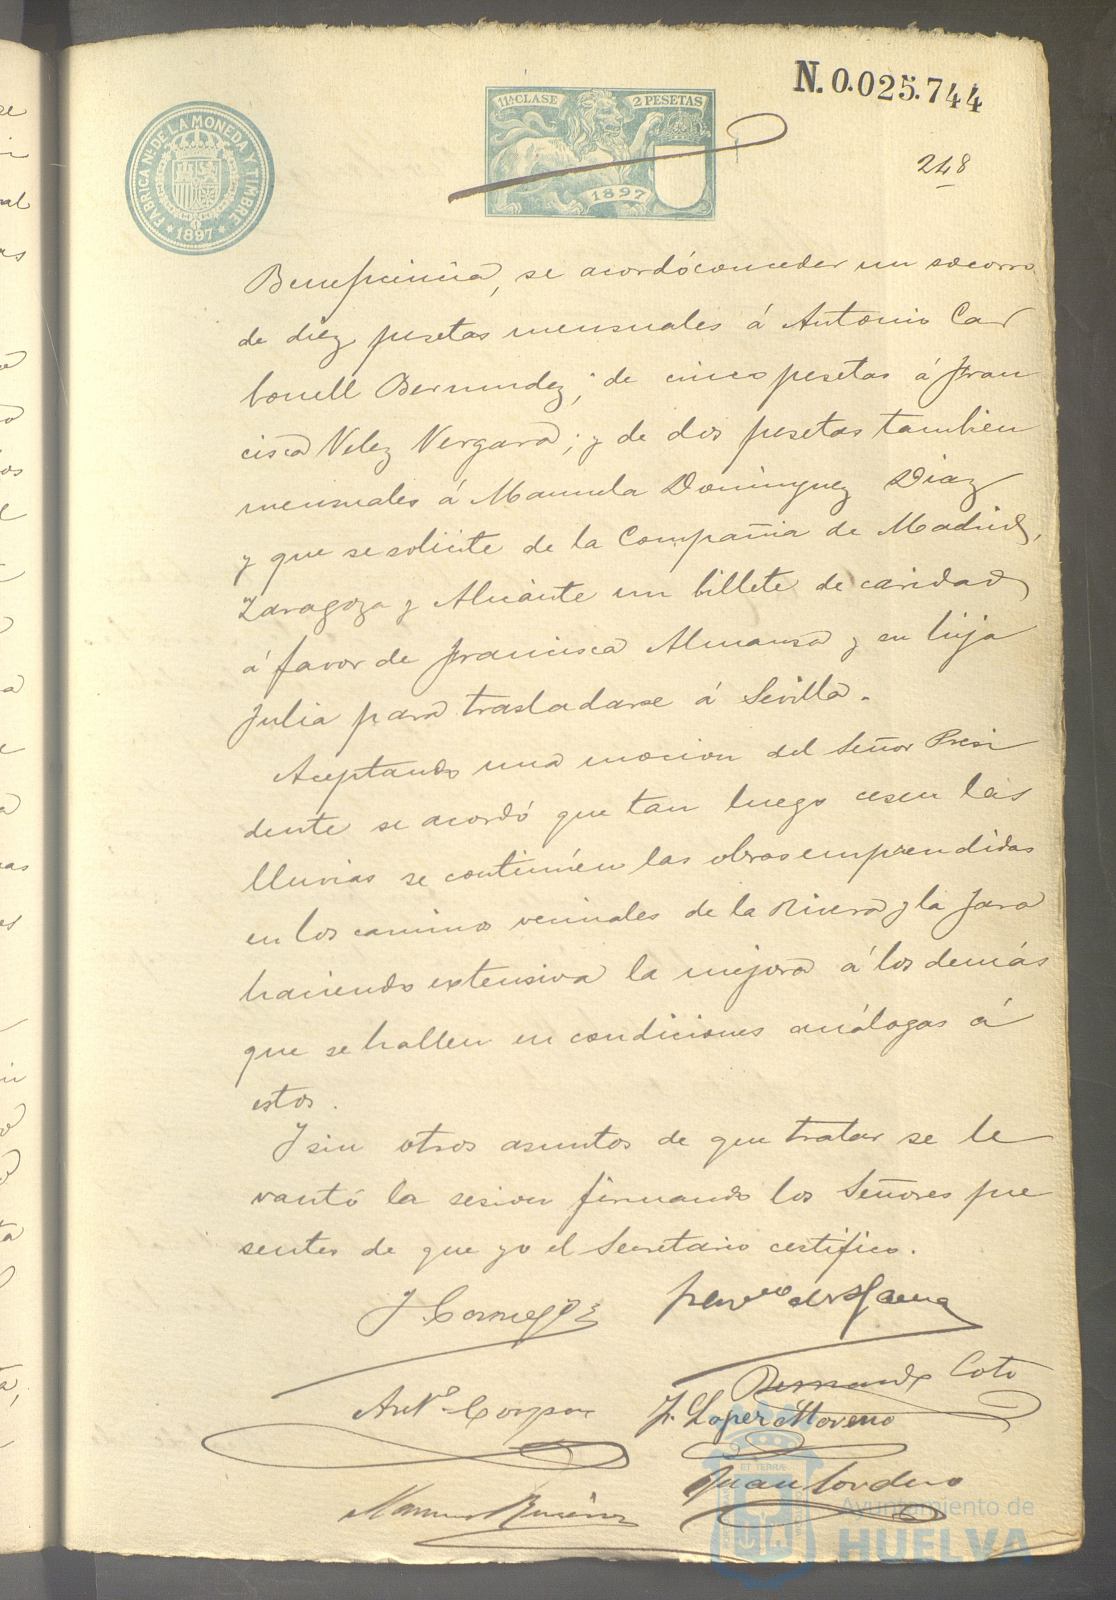 N. 0.025.744
11ª CLASE 2 PESETAS
1897
FABRICA Nl. DE LA MONEDA Y TIMBRE
1897
248
Beneficencia, se acordó conceder un socorro
de diez pesetas mensuales á Antonio Car
bonell Bermudez; de cinco pesetas á Fran
cisca Velez Vergara; y de dos pesetas tambien
mensuales á Manuela Dominguez Diaz
y que se solicite de la Compañia de Madrid,
Zaragoza y Alicante un billete de caridad
á favor de Francisca Almansa y su hija
Julia para trasladarse á Sevilla.
Aceptando una mocion del Señor Presi
dente se acordó que tan luego cesen las
lluvias se continúen las obras emprendidas
en los caminos vecinales de la Rivera y la Jara
haciendo extensiva la mejora á los demás
que se hallen en condiciones análogas á
estos.
Y sin otros asuntos de que tratar se le
vantó la sesion firmando los Señores pre
sentes de que yo el Secretario certifico.
Coto
J. Lopez Moreno
Juan Cordero
Manuel
ET TERRÆ
Ayuntamiento de
HUELVA